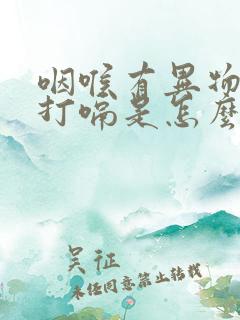 咽喉有异物
打嗝是怎么
吴征
未经同意禁止转载